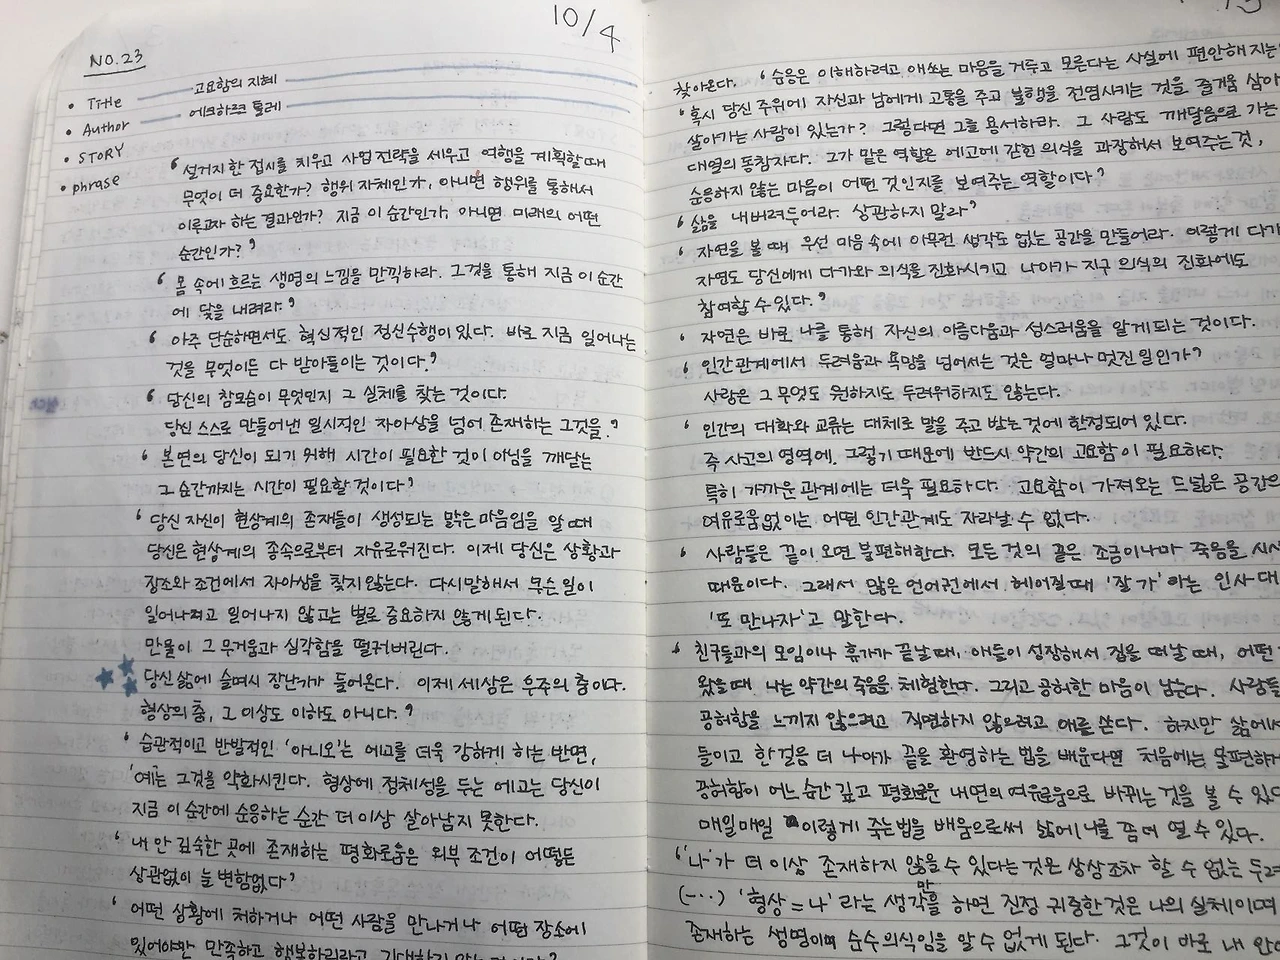 NO.23
10/4
• Title 고요함의 지혜
• Author 에크하르트 톨레
• STORY
• phrase
‘설거지한 접시를 치우고 사업 전략을 세우고 여행을 계획할 때
무엇이 더 중요한가? 행위 자체인가, 아니면 행위를 통해서
이루고자 하는 결과인가? 지금 이 순간인가, 아니면 미래의 어떤
순간인가?’
‘몸 속에 흐르는 생명의 느낌을 만끽하라. 그것을 통해 지금 이 순간
에 닻을 내려라.’
‘아주 단순하면서도 혁신적인 정신수행이 있다. 바로 지금 일어나는
것을 무엇이든 다 받아들이는 것이다.’
‘당신의 참모습이 무엇인지 그 실체를 찾는 것이다.
당신 스스로 만들어낸 일시적인 자아상을 넘어 존재하는 그것을.’
‘본연의 당신이 되기 위해 시간이 필요한 것이 아님을 깨닫는
그 순간까지는 시간이 필요할 것이다’
‘당신 자신이 현상계의 존재들이 생성되는 맑은 마음임을 알 때
당신은 현상계의 종속으로부터 자유로워진다. 이제 당신은 상황과
장소와 조건에서 자아상을 찾지 않는다. 다시말해서 무슨 일이
일어나고 일어나지 않고는 별로 중요하지 않게 된다.
만물이 그 무거움과 심각함을 떨쳐버린다.
당신 삶에 슬며시 장난기가 들어온다. 이제 세상은 우주의 춤이다.
형상의 춤, 그 이상도 이하도 아니다.’
‘습관적이고 반발적인 ‘아니오’는 에고를 더욱 강하게 하는 반면,
‘예’는 그것을 약화시킨다. 형상에 정체성을 두는 에고는 당신이
지금 이 순간에 순응하는 순간 더 이상 살아남지 못한다.
‘내 안 깊숙한 곳에 존재하는 평화로움은 외부 조건이 어떻든
상관없이 늘 변함없다’
‘어떤 상황에 처하거나 어떤 사람을 만나거나 어떤 장소에
있어야만 만족하고 행복하리라고 기대하지
찾아온다. ‘순응은 이해하려고 애쓰는 마음을 거두고 모른다는 사실에 편안해지는
‘혹시 당신 주위에 자신과 남에게 고통을 주고 불행을 전염시키는 것을 즐거움 삼아
살아가는 사람이 있는가? 그렇다면 그를 용서하라. 그 사람도 깨달음으로 가는
대열의 동참자다. 그가 맡은 역할은 에고에 갇힌 의식을 과장해서 보여주는 것,
순응하지 않는 마음이 어떤 것인지를 보여주는 역할이다.’
‘삶을 내버려두어라. 상관하지 말라’
‘자연을 볼 때 우선 마음 속에 아무런 생각도 없는 공간을 만들어라. 이렇게 다가
자연도 당신에게 다가와 의식을 진화시키고 나아가 지구 의식의 진화에도
참여할 수 있다.’
‘자연은 바로 나를 통해 자신의 아름다움과 성스러움을 알게 되는 것이다.
‘인간관계에서 두려움과 욕망을 넘어서는 것은 얼마나 멋진 일인가?
사랑은 그 무엇도 원하지도 두려워하지도 않는다.
‘인간의 대화와 교류는 대체로 말을 주고 받는 것에 한정되어 있다.
즉 사고의 영역에. 그렇기 때문에 반드시 약간의 고요함이 필요하다.
특히 가까운 관계에는 더욱 필요하다. 고요함이 가져오는 드넓은 공간의
여유로움없이는 어떤 인간관계도 자라날 수 없다.
‘사람들은 끝이 오면 불편해한다. 모든 것의 끝은 조금이나마 죽음을
때문이다. 그래서 많은 언어권에서 헤어질 때 ‘잘 가’라는 인사 대
‘또 만나자’고 말한다.
‘친구들과의 모임이나 휴가가 끝날 때, 애들이 성장해서 집을 떠날 때, 어떤
왔을 때 나는 약간의 죽음을 체험한다. 그리고 공허한 마음이 남는다. 사람들
공허함을 느끼지 않으려고 직면하지 않으려고 애를 쓴다. 하지만 삶에서
들이고 한 걸음 더 나아가 끝을 환영하는 법을 배운다면 처음에는 불편하게
공허함이 어느 순간 깊고 평화로운 내면의 여유로움으로 바뀌는 것을 볼 수 있다
매일매일 이렇게 죽는 법을 배움으로써 삶에 나를 좀 더 열 수 있다.
‘‘나’가 더 이상 존재하지 않을 수 있다는 것은 상상조차 할 수 없는
(---) ‘형상=나’라는 생각만을 하면 진정 귀중한 것은 나의 실체이며
존재하는 생명이며 순수의식임을 알 수 없게 된다. 그것이 바로 내 안